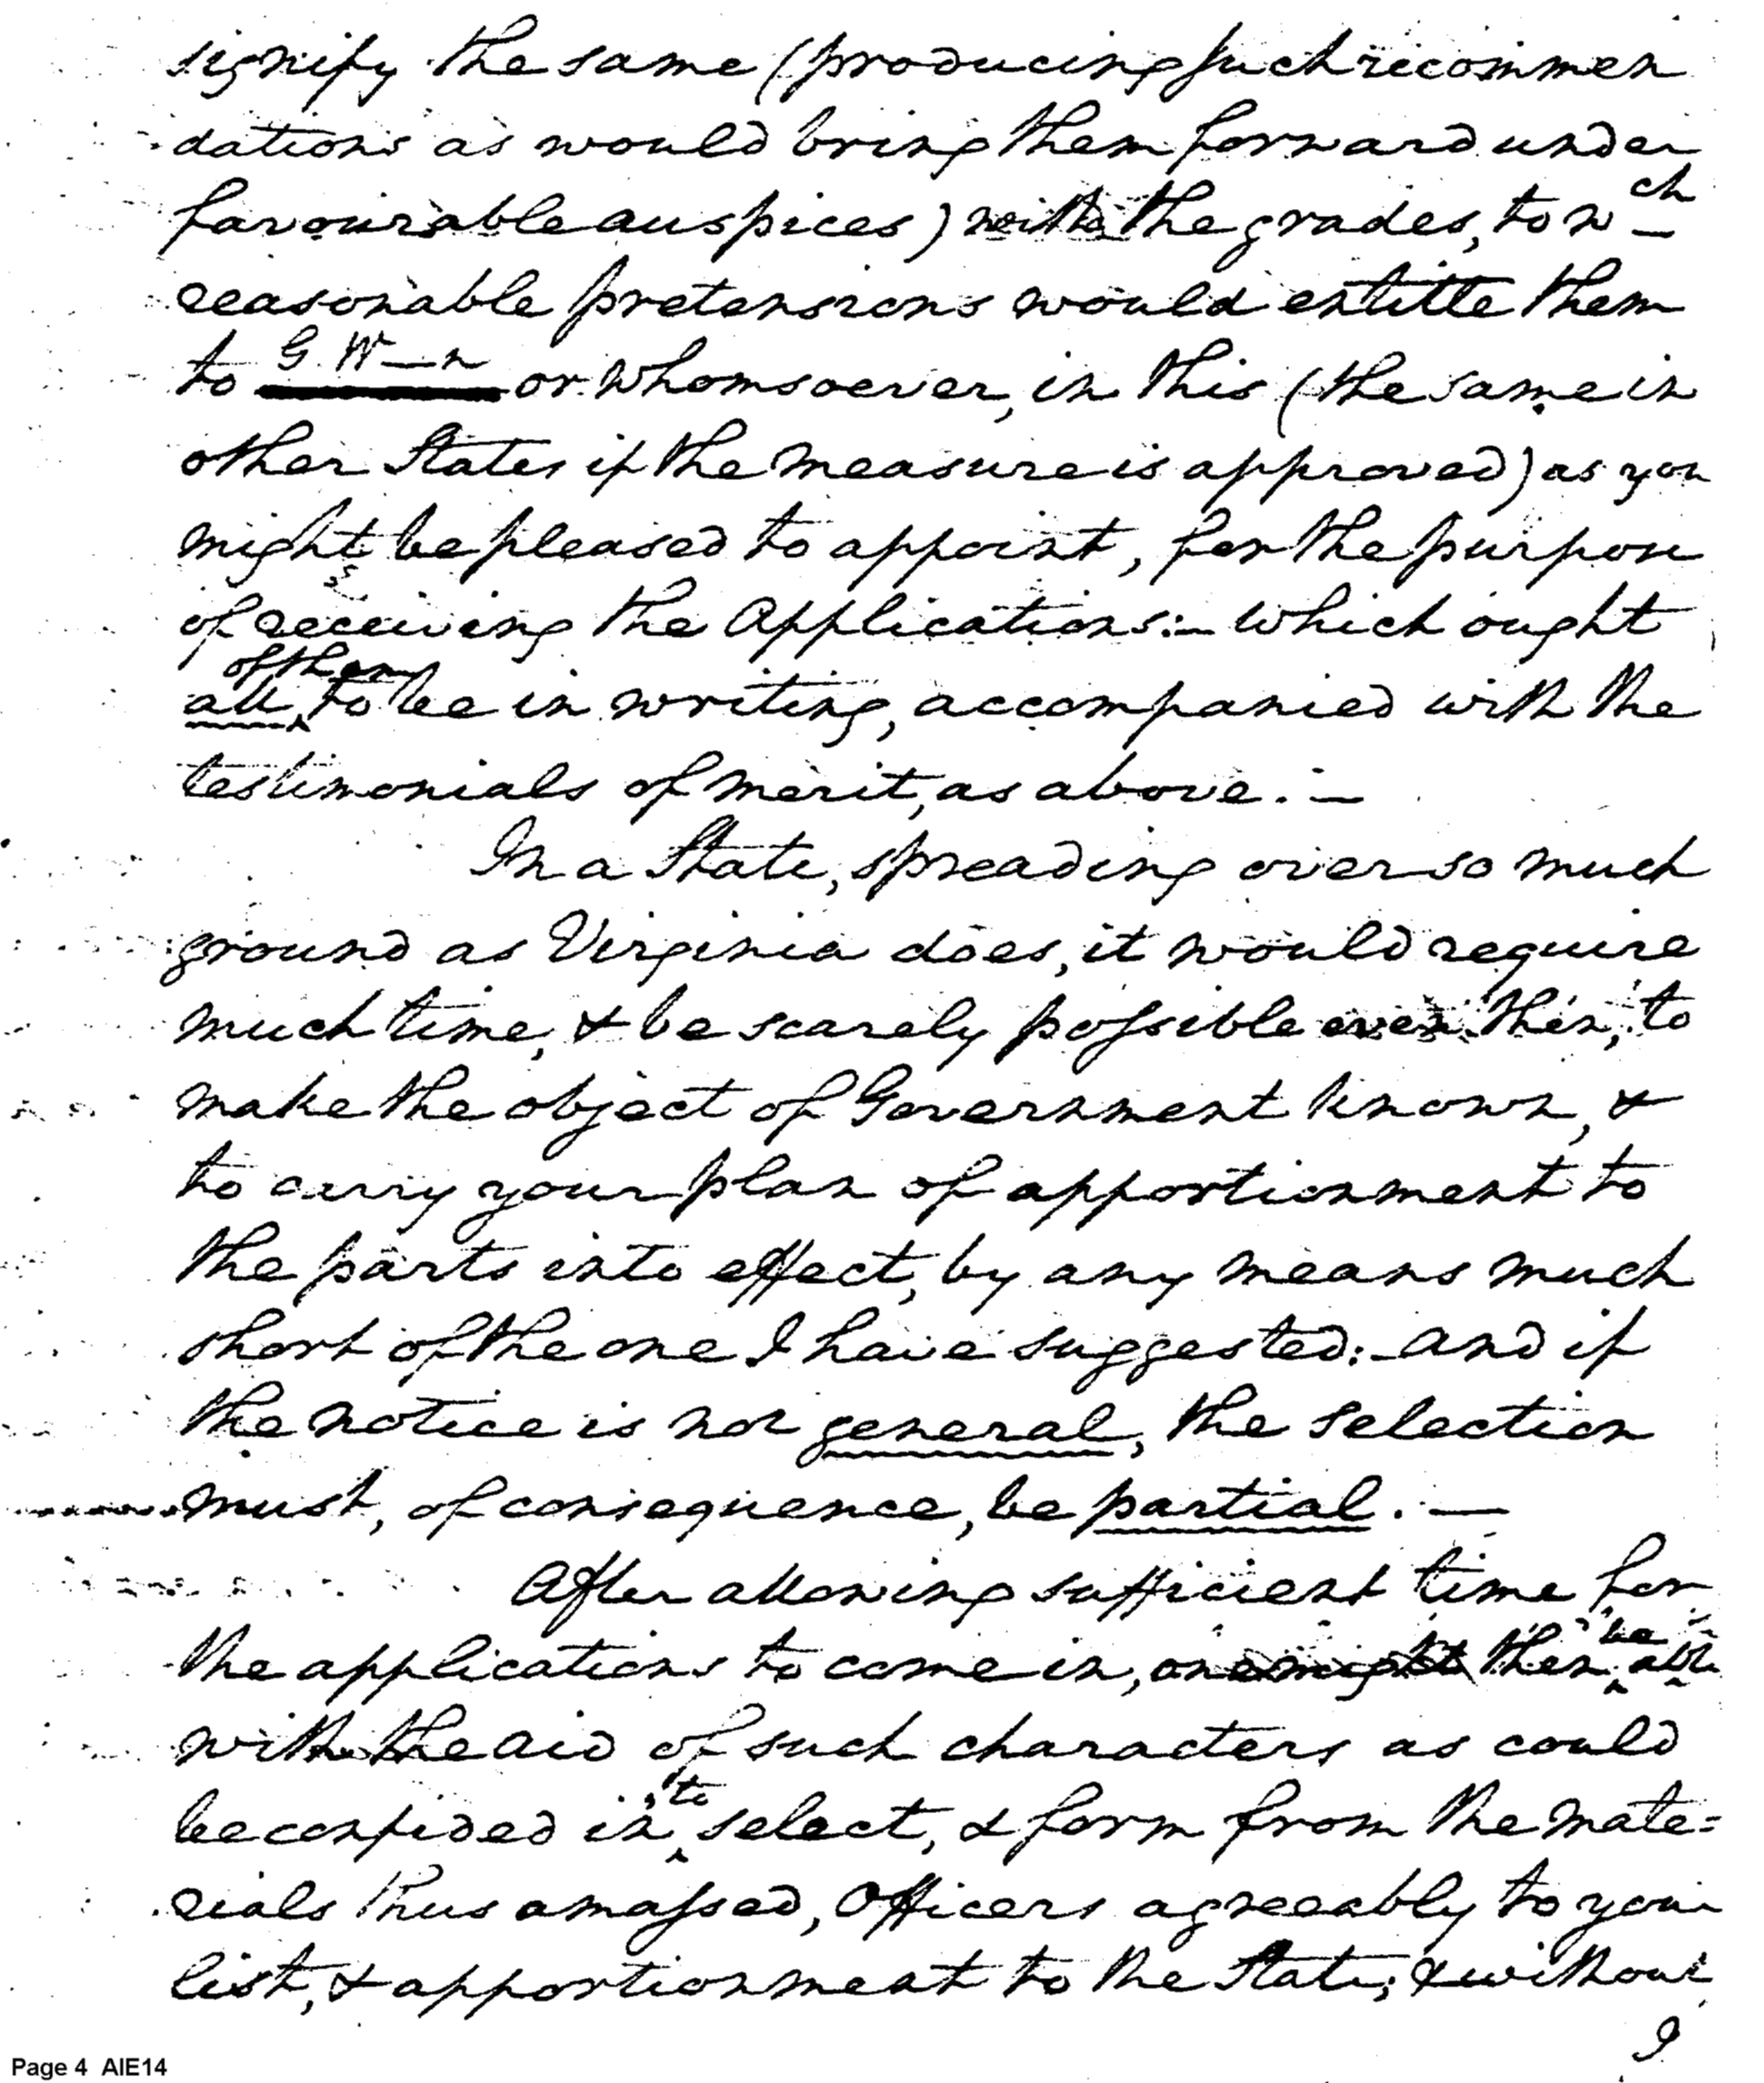 signify the same (producing such recommen
dations as would bring them forward under
favourable auspices) with the grades, to wch
reasonable pretensions would entitle them
to G. W—n or whomsoever, in this (the same in
other States if the measure is approved) as you
might be pleased to appoint, for the purpose
of receiving the Applications:– which ought
all of them to be in writing, accompanied with the
testimonials of merit, as above. –
In a State, spreading over so much
ground as Virginia does, it would require
much time, & be scarely possible even then, to
make the object of Government known, &
to carry your plan of apportionment to
the parts into effect, by any means much
short of the one I have suggested: and if
the notice is not general, the selection
must, of consequence, be partial. —
After allowing sufficient time for
the applications to come in, one might then be able
with the aid of such characters as could
be confided in, to select, & form from the mate=
rials thus amassed, Officers agreeably to your
list, & apportionment to the State; & without
9
Page 4 AIE14